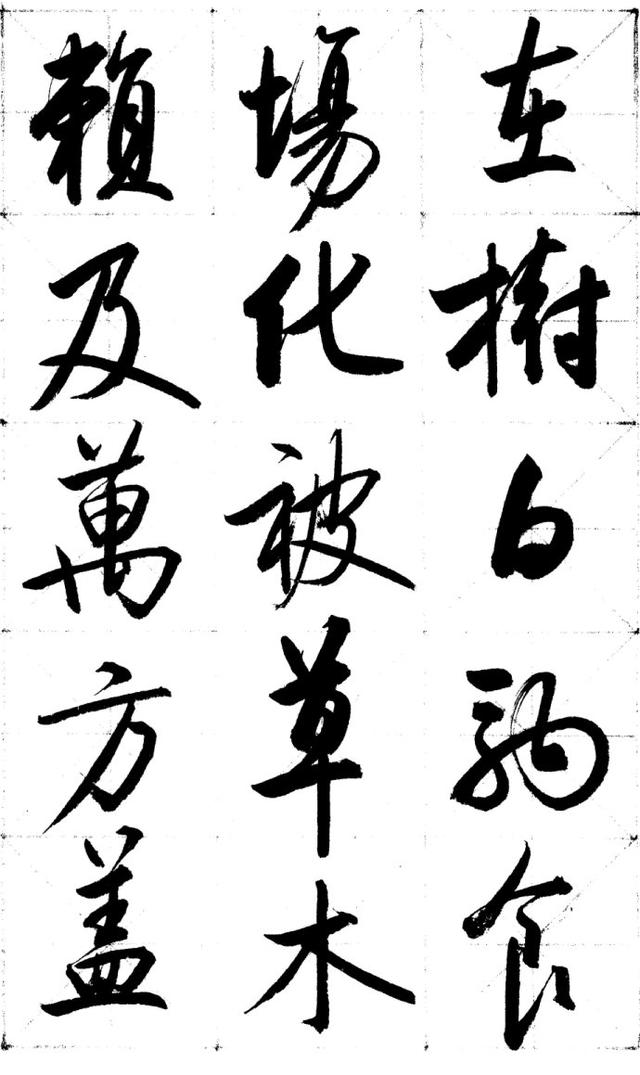 在樹白駒食
場化被草木
賴及萬方蓋